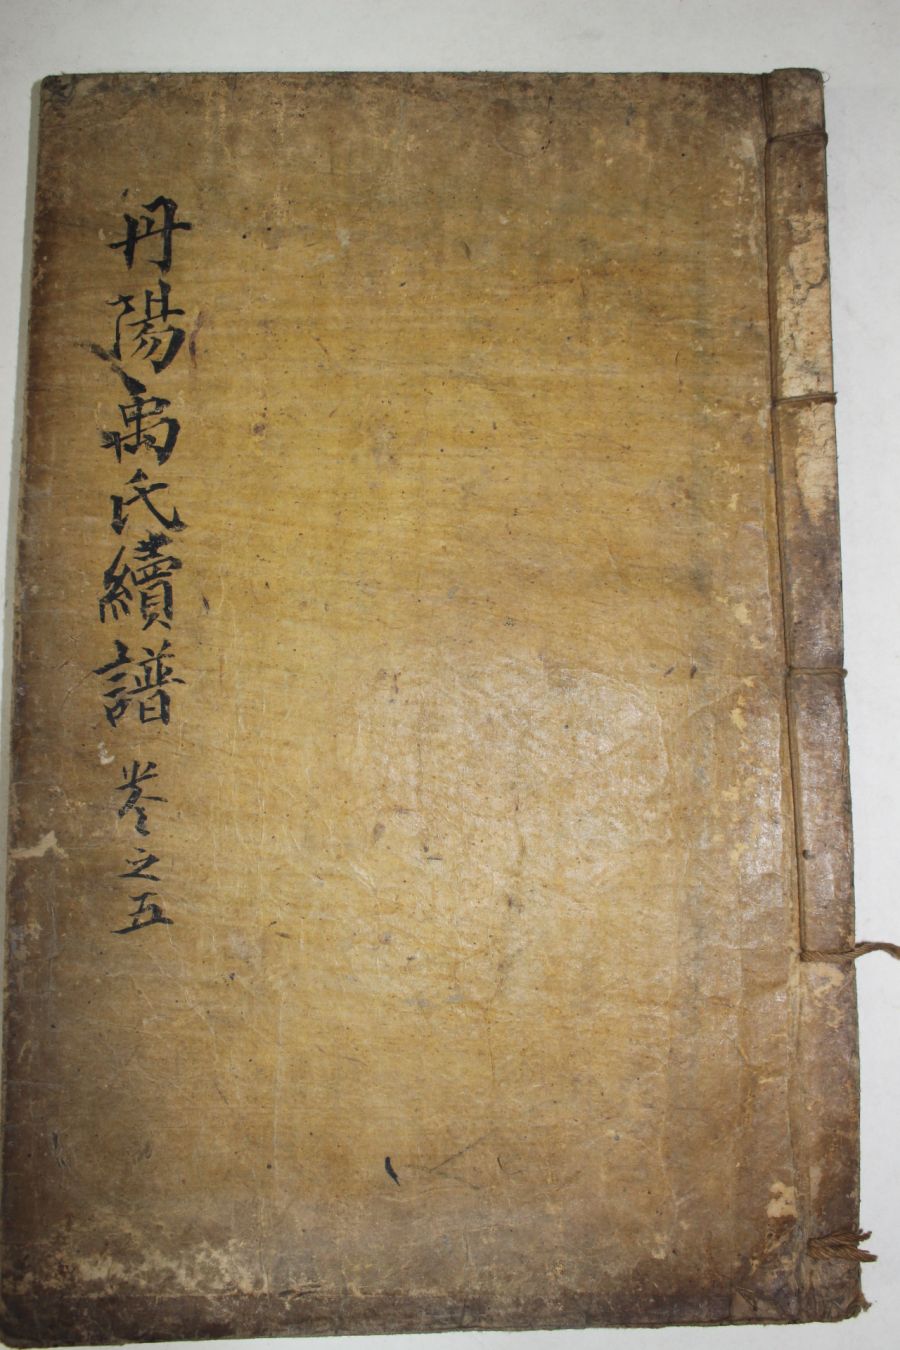 丹陽禹氏續譜 卷之五